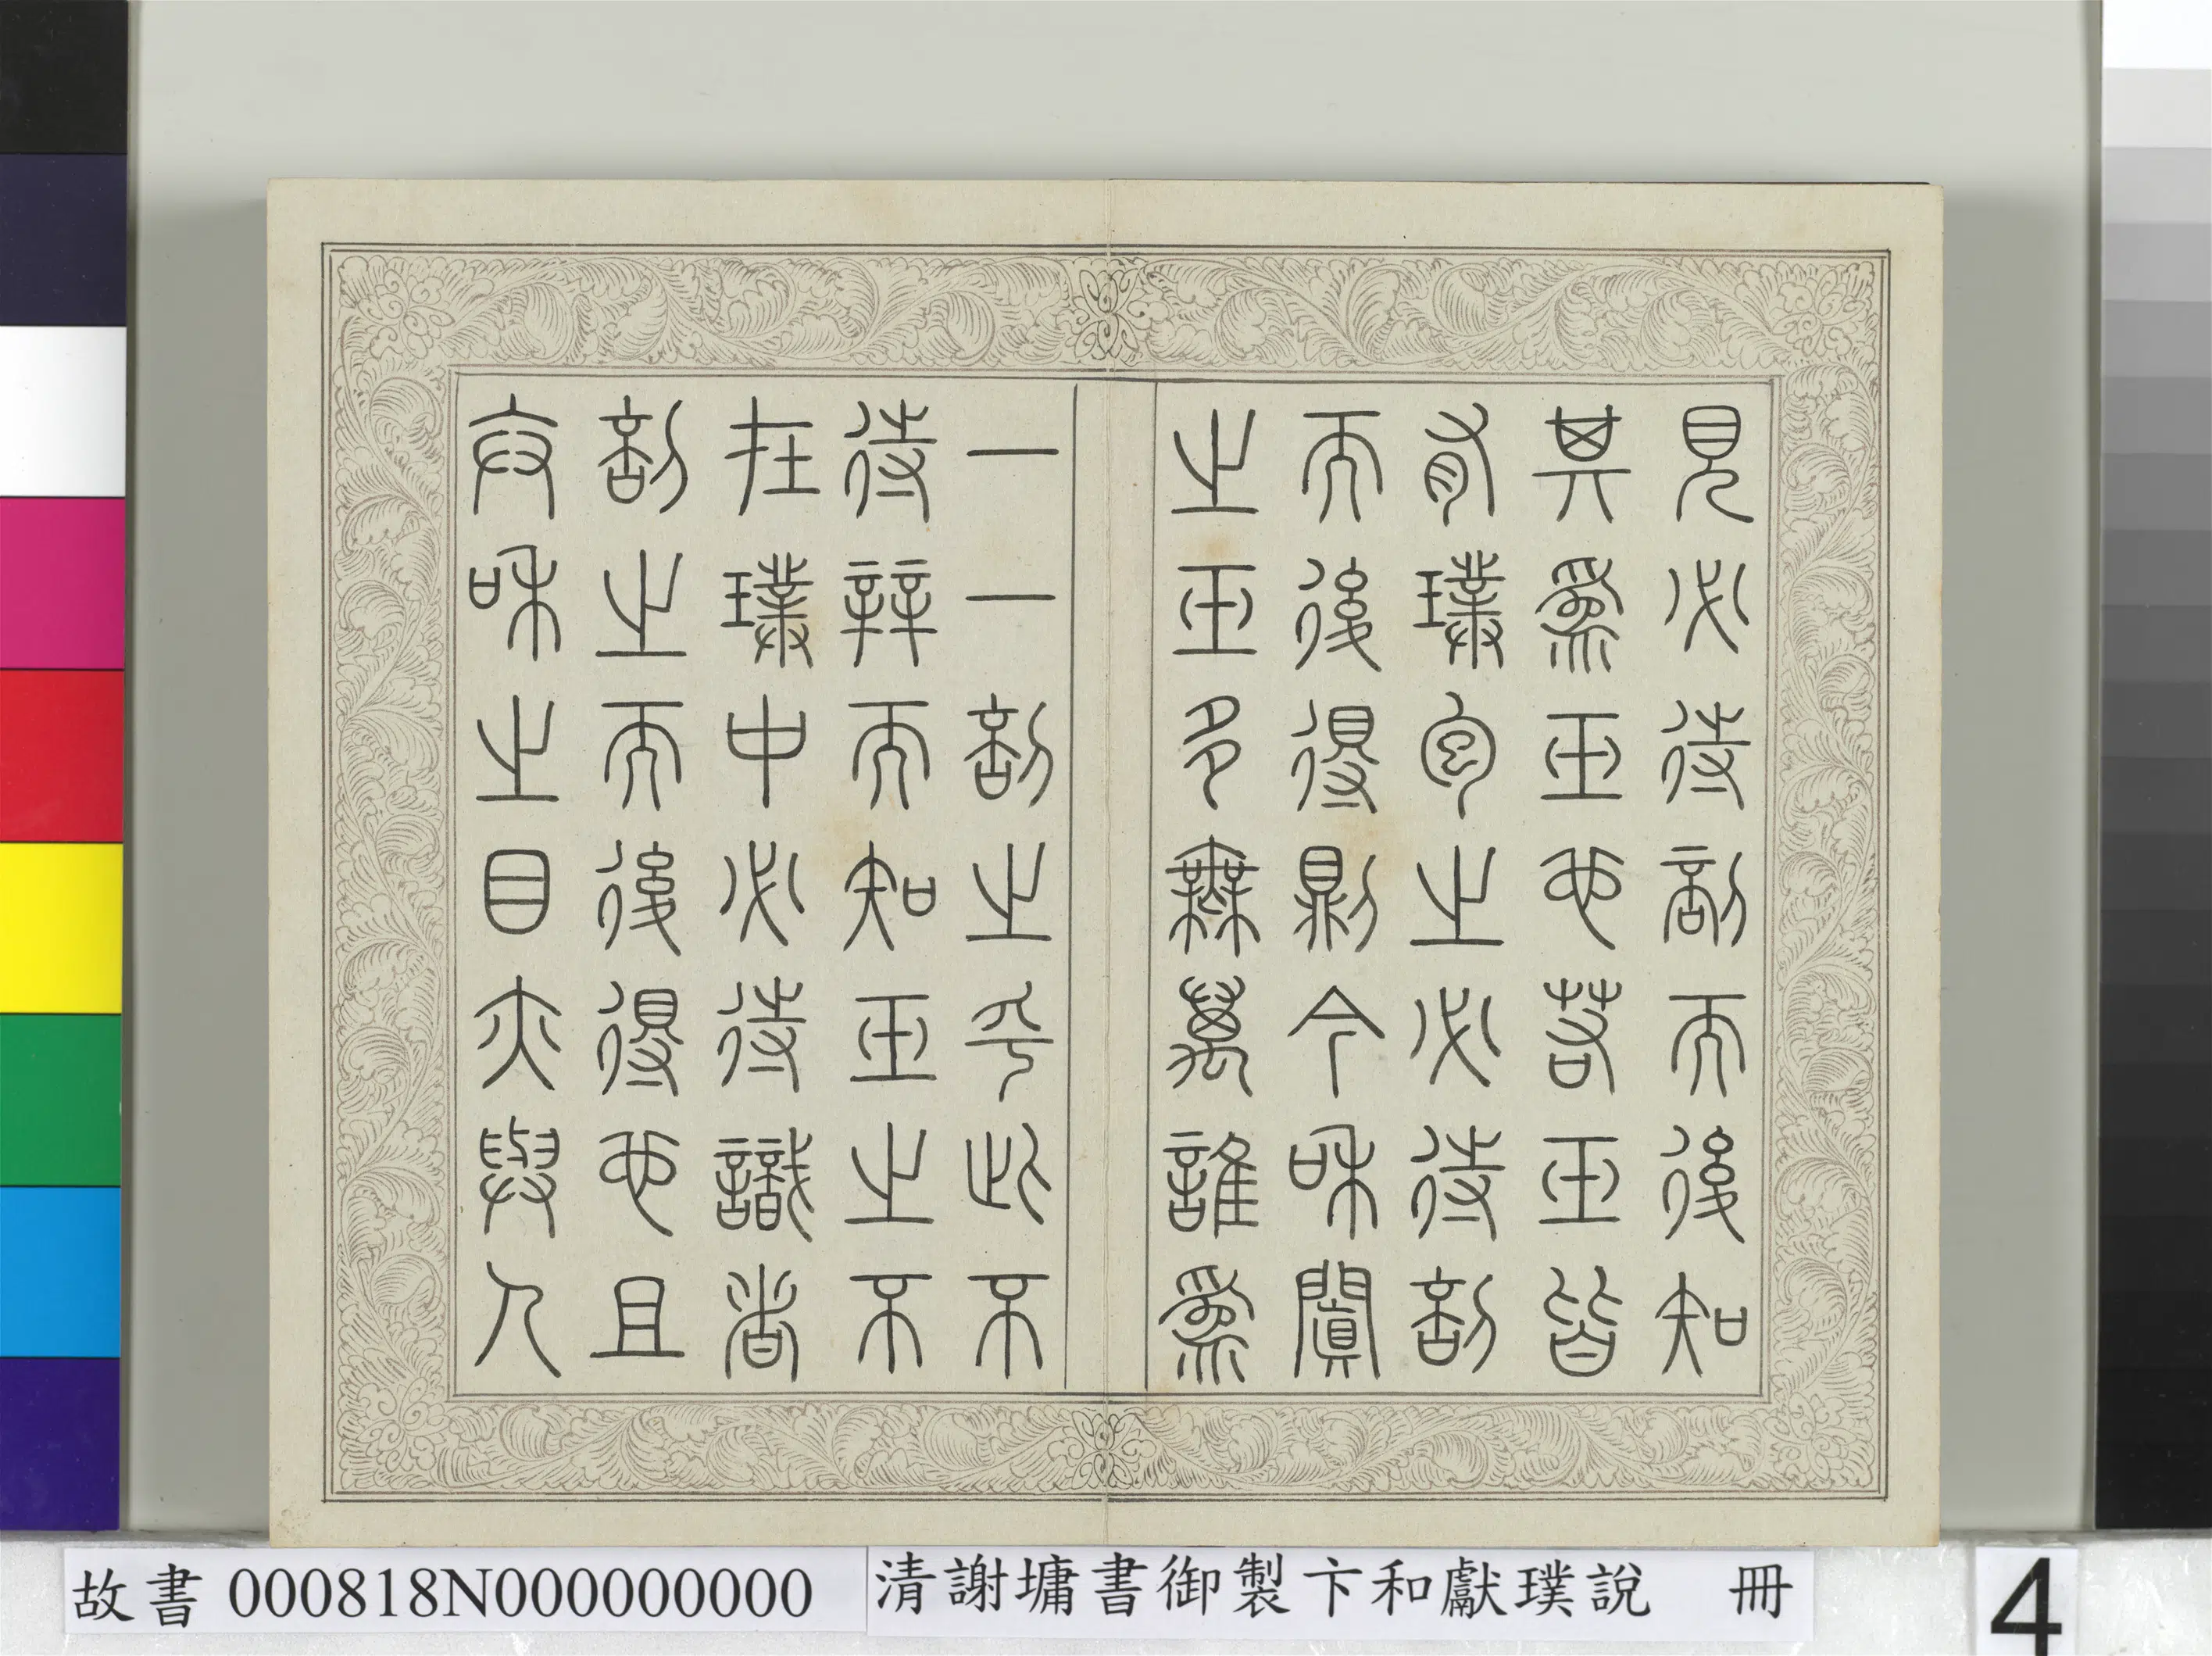 見必待剖而後知
其為玉也若玉皆
有璞包之必待剖
而後得則今和闐
之玉多無萬誰為
一一剖之乎此不
待辨而知玉之不
在璞中必待識者
剖之而後得也且
卞和之目亦與人
故書 000818N000000000
清謝墉書御製卞和獻璞說 冊
4